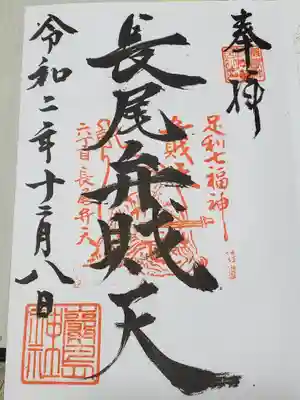 奉拝
足利七福神
長尾弁財天
六丁目長尾弁天
令和二年十二月八日
嚴島神社